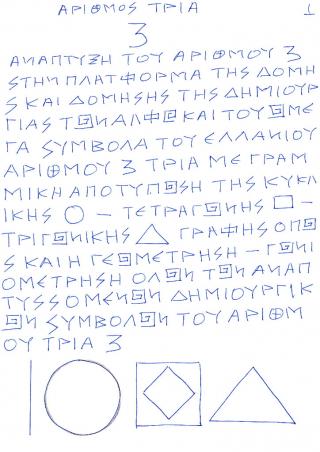 ΑΡΙΘΜΟΣ ΤΡΙΑ 1
3
ΑΝΑΠΤΥΞΗ ΤΟΥ ΑΡΙΘΜΟΥ 3
ΣΤΗΝ ΠΛΑΤΦΟΡΜΑ ΤΗΣ ΔΟΜΗ
Σ ΚΑΙ ΔΟΜΗΣΗΣ ΤΗΣ ΔΗΜΙΟΥΡ
ΓΙΑΣ ΤΩΝ ΑΛΦΑ ΚΑΙ ΤΟΥ ΩΜΕ
ΓΑ ΣΥΜΒΟΛΑ ΤΟΥ ΕΛΛΑΝΙΟΥ
ΑΡΙΘΜΟΥ 3 ΤΡΙΑ ΜΕ ΓΡΑΜ
ΜΙΚΗ ΑΠΟΤΥΠΩΣΗ ΤΗΣ ΚΥΚΛ
ΙΚΗΣ ○ – ΤΕΤΡΑΓΩΝΗΣ □ –
ΤΡΙΓΩΝΙΚΗΣ △ ΓΡΑΦΗΣ ΟΠΩ
Σ ΚΑΙ Η ΓΕΩΜΕΤΡΗΣΗ – ΓΩΝΙ
ΟΜΕΤΡΗΣΗ ΟΛΩΝ ΤΩΝ ΑΝΑΠ
ΤΥΣΣΟΜΕΝΩΝ ΔΗΜΙΟΥΡΓΙΚ
ΩΝ ΣΥΜΒΟΛΩΝ ΤΟΥ ΑΡΙΘΜ
ΟΥ ΤΡΙΑ 3